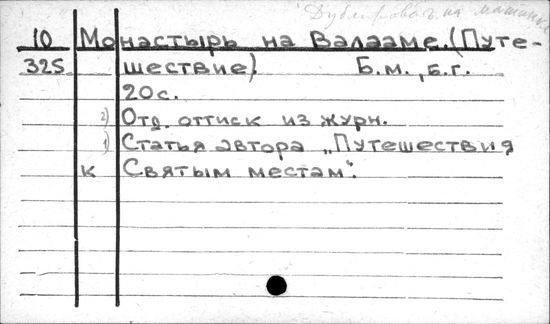 на машинке
10 Монастырь на Валааме. (Путе-
325 шествие). Б.м., б.г.
20 с.
2) Отд. оттиск из журн.
1) Статья автора „Путешествия
к Святым местам".